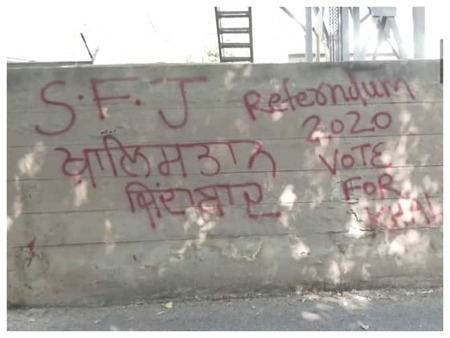 S.F.J
ਖਾਲਿਸਤਾਨ
ਜ਼ਿੰਦਾਬਾਦ
Referndum
2020
VOTE
FOR